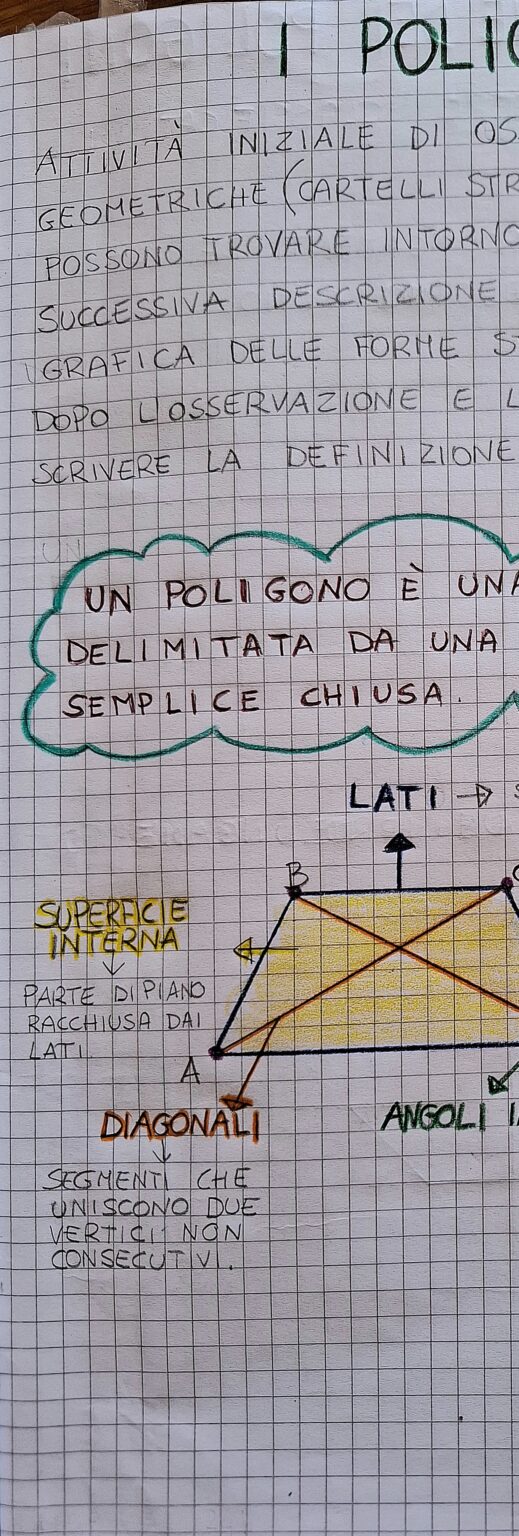 I POLIG
ATTIVITÀ INIZIALE DI OS
GEOMETRICHE (CARTELLI STR
POSSONO TROVARE INTORNO
SUCCESSIVA DESCRIZIONE
GRAFICA DELLE FORME S
DOPO L'OSSERVAZIONE E L
SCRIVERE LA DEFINIZIONE
UN
UN POLIGONO È UNA
DELIMITATA DA UNA
SEMPLICE CHIUSA.
LATI → S
B C
SUPERFICIE
INTERNA
PARTE DI PIANO
RACCHIUSA DAI
LATI.
A
DIAGONALI
ANGOLI I
SEGMENTI CHE
UNISCONO DUE
VERTICI NON
CONSECUTIVI.